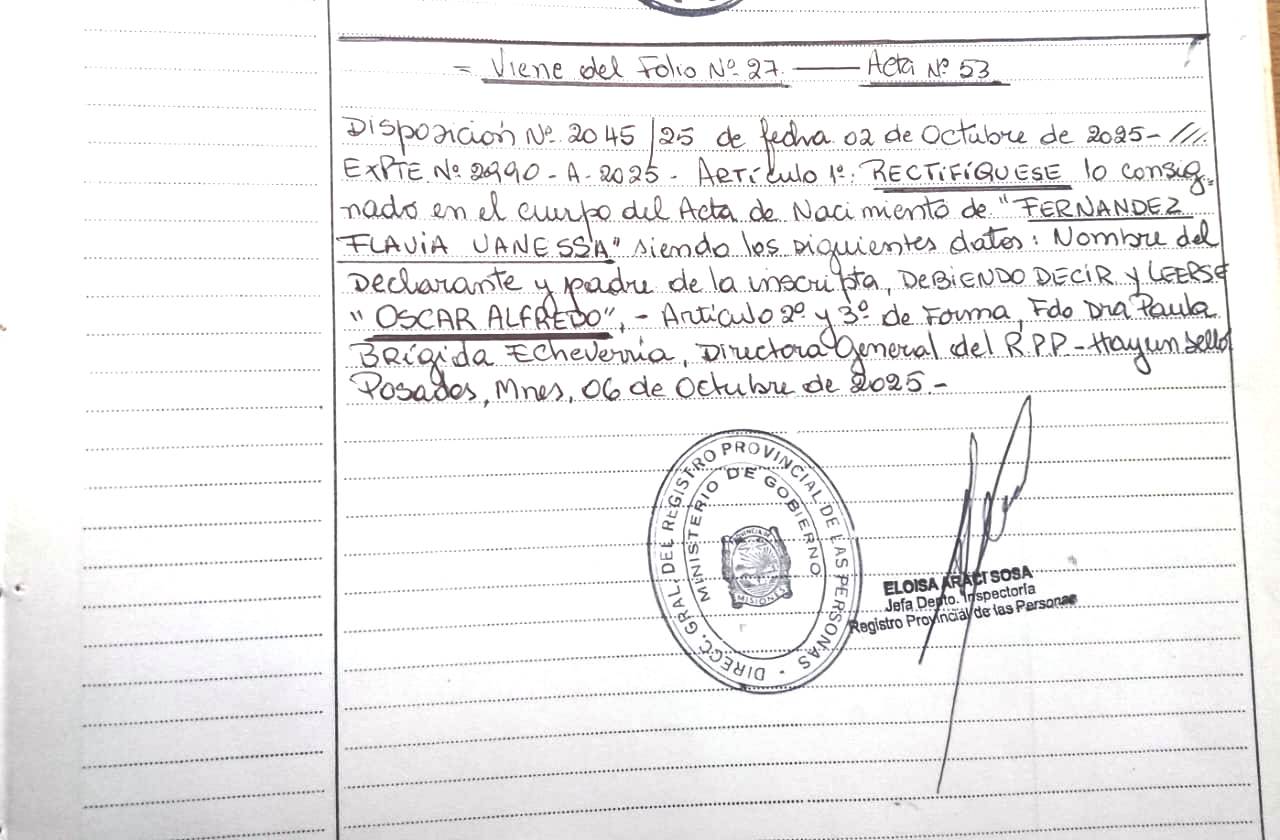 = Viene del Folio Nº 27. —— Acta Nº 53
Disposición Nº 2045/25 de fecha 02 de Octubre de 2025- ///.
EXPTE Nº 2990 - A - 2025 - Artículo 1º: RECTIFÍQUESE lo consig-
nado en el cuerpo del Acta de Nacimiento de "FERNANDEZ
FLAVIA VANESSA" siendo los siguientes datos: Nombre del
Declarante y padre de la inscripta, DEBIENDO DECIR y LEERSE
"OSCAR ALFREDO", - Artículo 2º y 3º de Forma, Fdo Dra Paula
Brígida Echeverría, Directora General del R.P.P - Hay un sello
Posadas, Mnes, 06 de Octubre de 2025.-
DIRECC. GRAL. DEL REGISTRO PROVINCIAL DE LAS PERSONAS -
MINISTERIO DE GOBIERNO
PROVINCIA DE
MISIONES
ELOISA ARACI SOSA
Jefa Depto. Inspectoría
Registro Provincial de las Personas